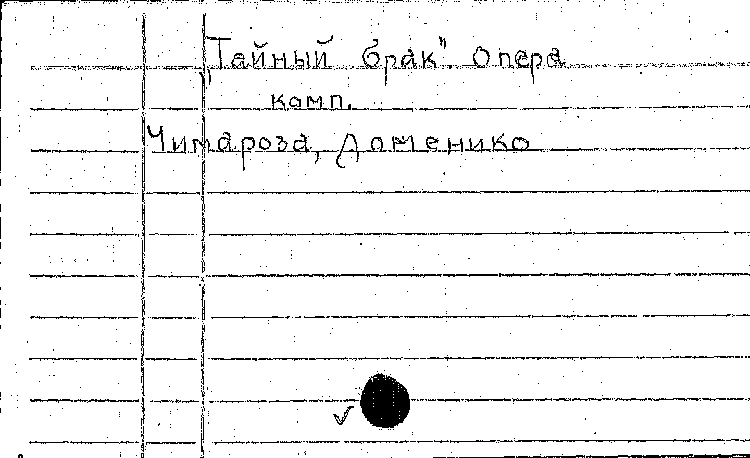 "Тайный брак". Опера
комп.
Чимароза, Доменико